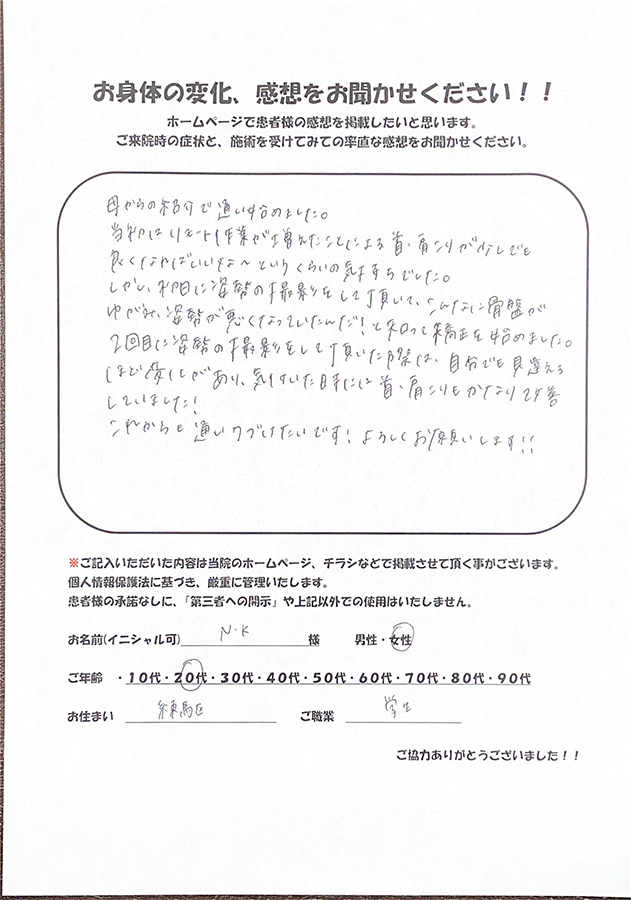 お身体の変化、感想をお聞かせください！！
ホームページで患者様の感想を掲載したいと思います。
ご来院時の症状と、施術を受けてみての率直な感想をお聞かせください。
母からの紹介で通い始めました。
当初はリモート作業が増えたことによる首・肩こりが少しでも
良くなればいいな〜というくらいの気持ちでした。
しかし、初日に姿勢の撮影をして頂いて、こんなに骨盤が
ゆがみ、姿勢が悪くなっていたんだ！と知って矯正を始めました。
2回目に姿勢の撮影をして頂いた際は、自分でも見違える
ほど変化があり、気付いた時には首・肩こりもかなり改善
していました！
これからも通いつづけたいです！よろしくお願いします!!
※ご記入いただいた内容は当院のホームページ、チラシなどで掲載させて頂く事がございます。
個人情報保護法に基づき、厳重に管理いたします。
患者様の承諾なしに、『第三者への開示』や上記以外での使用はいたしません。
お名前(イニシャル可) N・K 様 男性・女性
ご年齢 ・10代・20代・30代・40代・50代・60代・70代・80代・90代
お住まい 練馬区 ご職業 学生
ご協力ありがとうございました！！